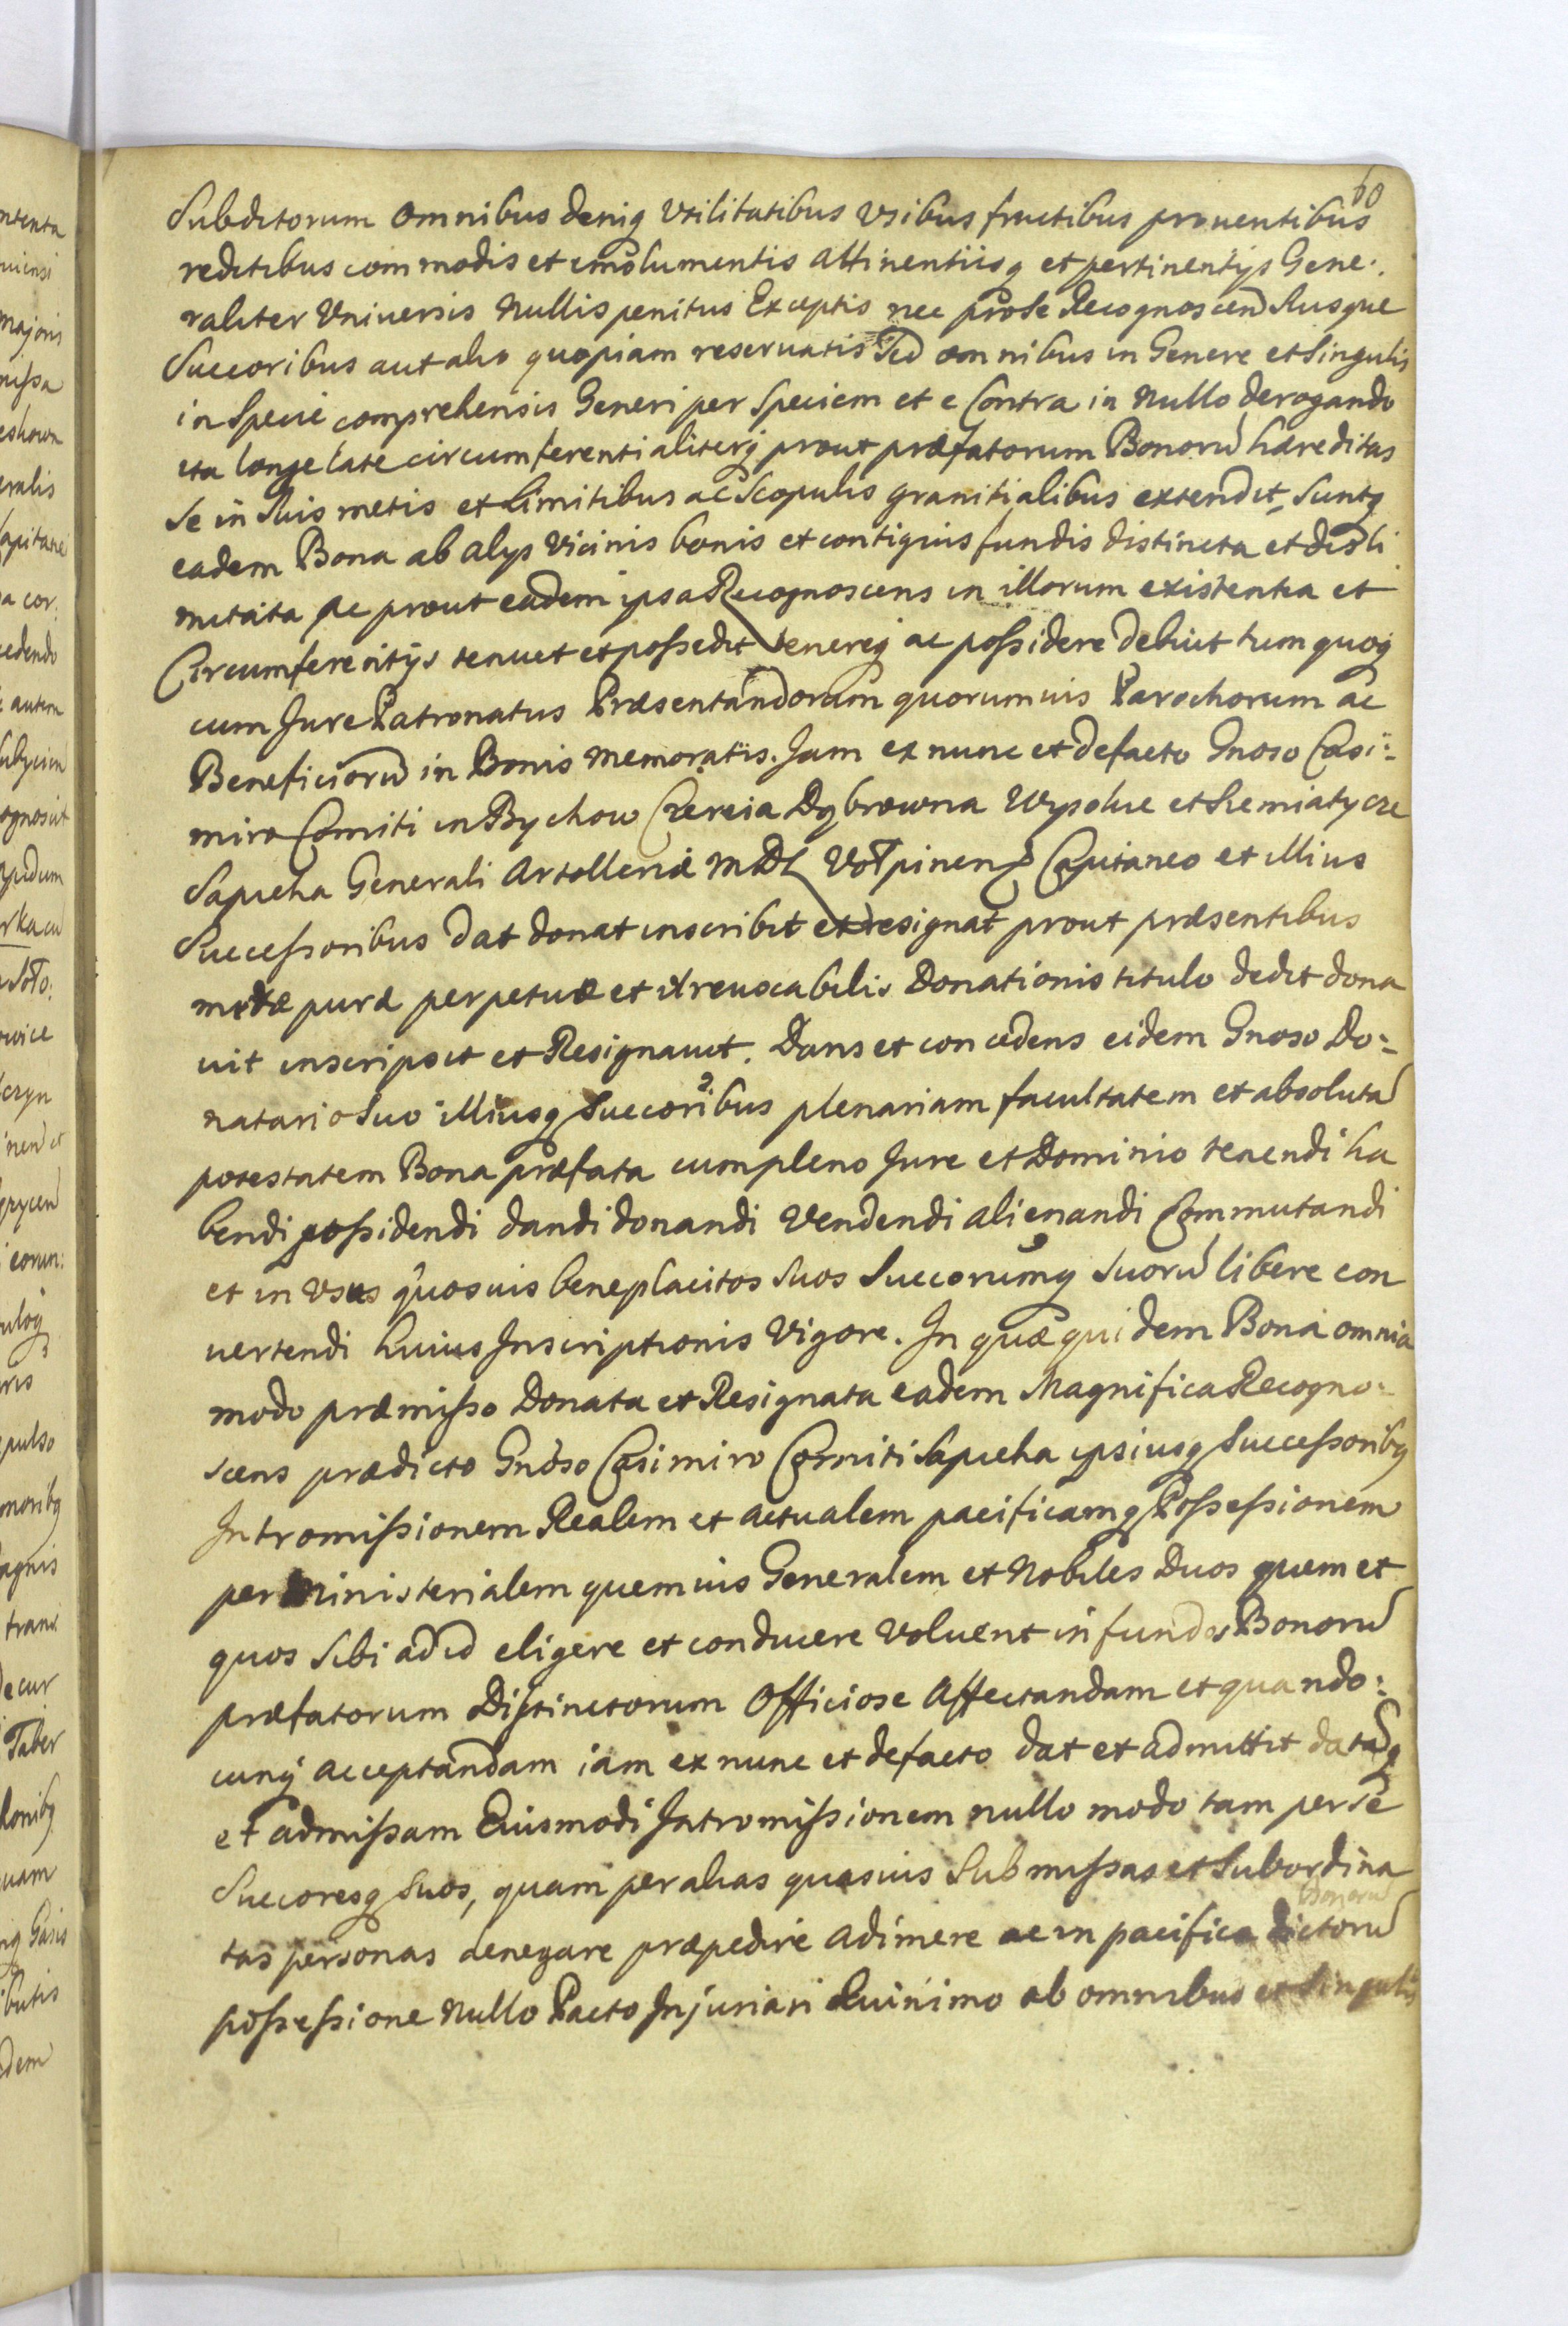 60
Subditorum omnibus deniq vtilitatibus vsibus fructibus prouentibus
reditibus commodis et emolumentis attinentiisq et pertinentijs Gene:
raliter Vniuersis Nullis penitus Exceptis nec pro se Recognoscen Susque
Succoribus aut alio quopiam reseruatis Sed omnibus in Genere et Singulis
in Specie comprehensis Generi per Speciem et e Contra in Nullo derogando
ita longe late circumferentialiterq prout præfatorum Bonorũ hæreditas
se in Suis metis et limitibus ac Scopulis granitialibus extendit, Suntq
eadem Bona ab alijs Vicinis bonis et contiguis fundis distincta et disli
mitata Ac prout eadem ipsa Recognoscens in illorum existentia et
Circumferentijs tenuit et possedit tenereq ac possidere debuit tum quoq
cum Jure Patronatus Præsentandorum quorumuis Parochorum ac
Beneficiorũ in Bonis memoratis. Jam ex nunc et defacto Gnoso Casi:
miro Comiti in Bychow Czereia Dąbrowna Wysokie et Siemiatycze
Sapieha Generali Artolleriæ MDL Vołpinen Capitaneo et illius
Successoribus dat donat inscribit et resignat prout præsentibus
meræ puræ perpetuæ et irreuocabilis Donationis titulo dedit dona
uit inscripsit et Resignauit. Dans et concedens eidem Gnoso Do:
natario Suo illiusq Succoribus plenariam facultatem et absolutã
potestatem Bona præfata cum pleno Jure et Dominio tenendi ha
bendi possidendi dandi donandi Vendendi alienandi Commutandi
et in vsus quosuis beneplacitos Suos Succorumq Suorũ libere con
uertendi huius Inscriptionis Vigore. In quæ quidem Bona omnia
modo præmisso Donata et Resignata eadem Magnifica Recogno:
scens prædicto Gnoso Casimiro Comiti Sapieha ipsiusq Successoribq
Intromissionem Realem et actualem pacificamq Possessionem
per Ministerialem quemuis Generalem et Nobiles Duos quem et
quos Sibi ad id eligere et conducere Voluerit in fundis Bonorũ
præfatorum Distinctorum Officiose Affectandam et quando:
cunq acceptandam iam ex nunc et defacto dat et admittit datãq
et admissam Eiusmodi Intromissionem nullo modo tam per se
Succoresq Suos, quam per alias quasuis Submissas et Subordina
tas personas denegare præpedire adimere ac in pacifica dictorũ Bonorũ
possessione Nullo Pacto Injuriari Quinimo ab omnibus et Singulis